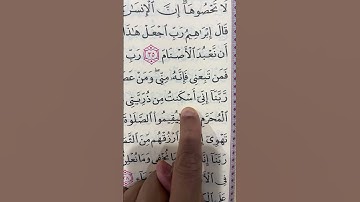 لَا تُحْصُوهَا إِنَّ الْإِنسَٰنَ
قَالَ إِبْرَاهِيمُ رَبِّ اجْعَلْ هَٰذَا
أَن نَّعْبُدَ الْأَصْنَامَ ٣٥ رَبِّ
فَمَن تَبِعَنِي فَإِنَّهُ مِنِّي وَمَنْ عَصَا
رَّبَّنَا إِنِّي أَسْكَنتُ مِن ذُرِّيَّتِي
الْمُحَرَّمِ لِيُقِيمُوا الصَّلَوٰةَ
تَهْوِي ارْزُقْهُم مِّنَ الثَّمَ
رَبَّنَا إِنَّكَ مَا نُخْفِي وَمَا نُعْلِ
فِي الْأَ